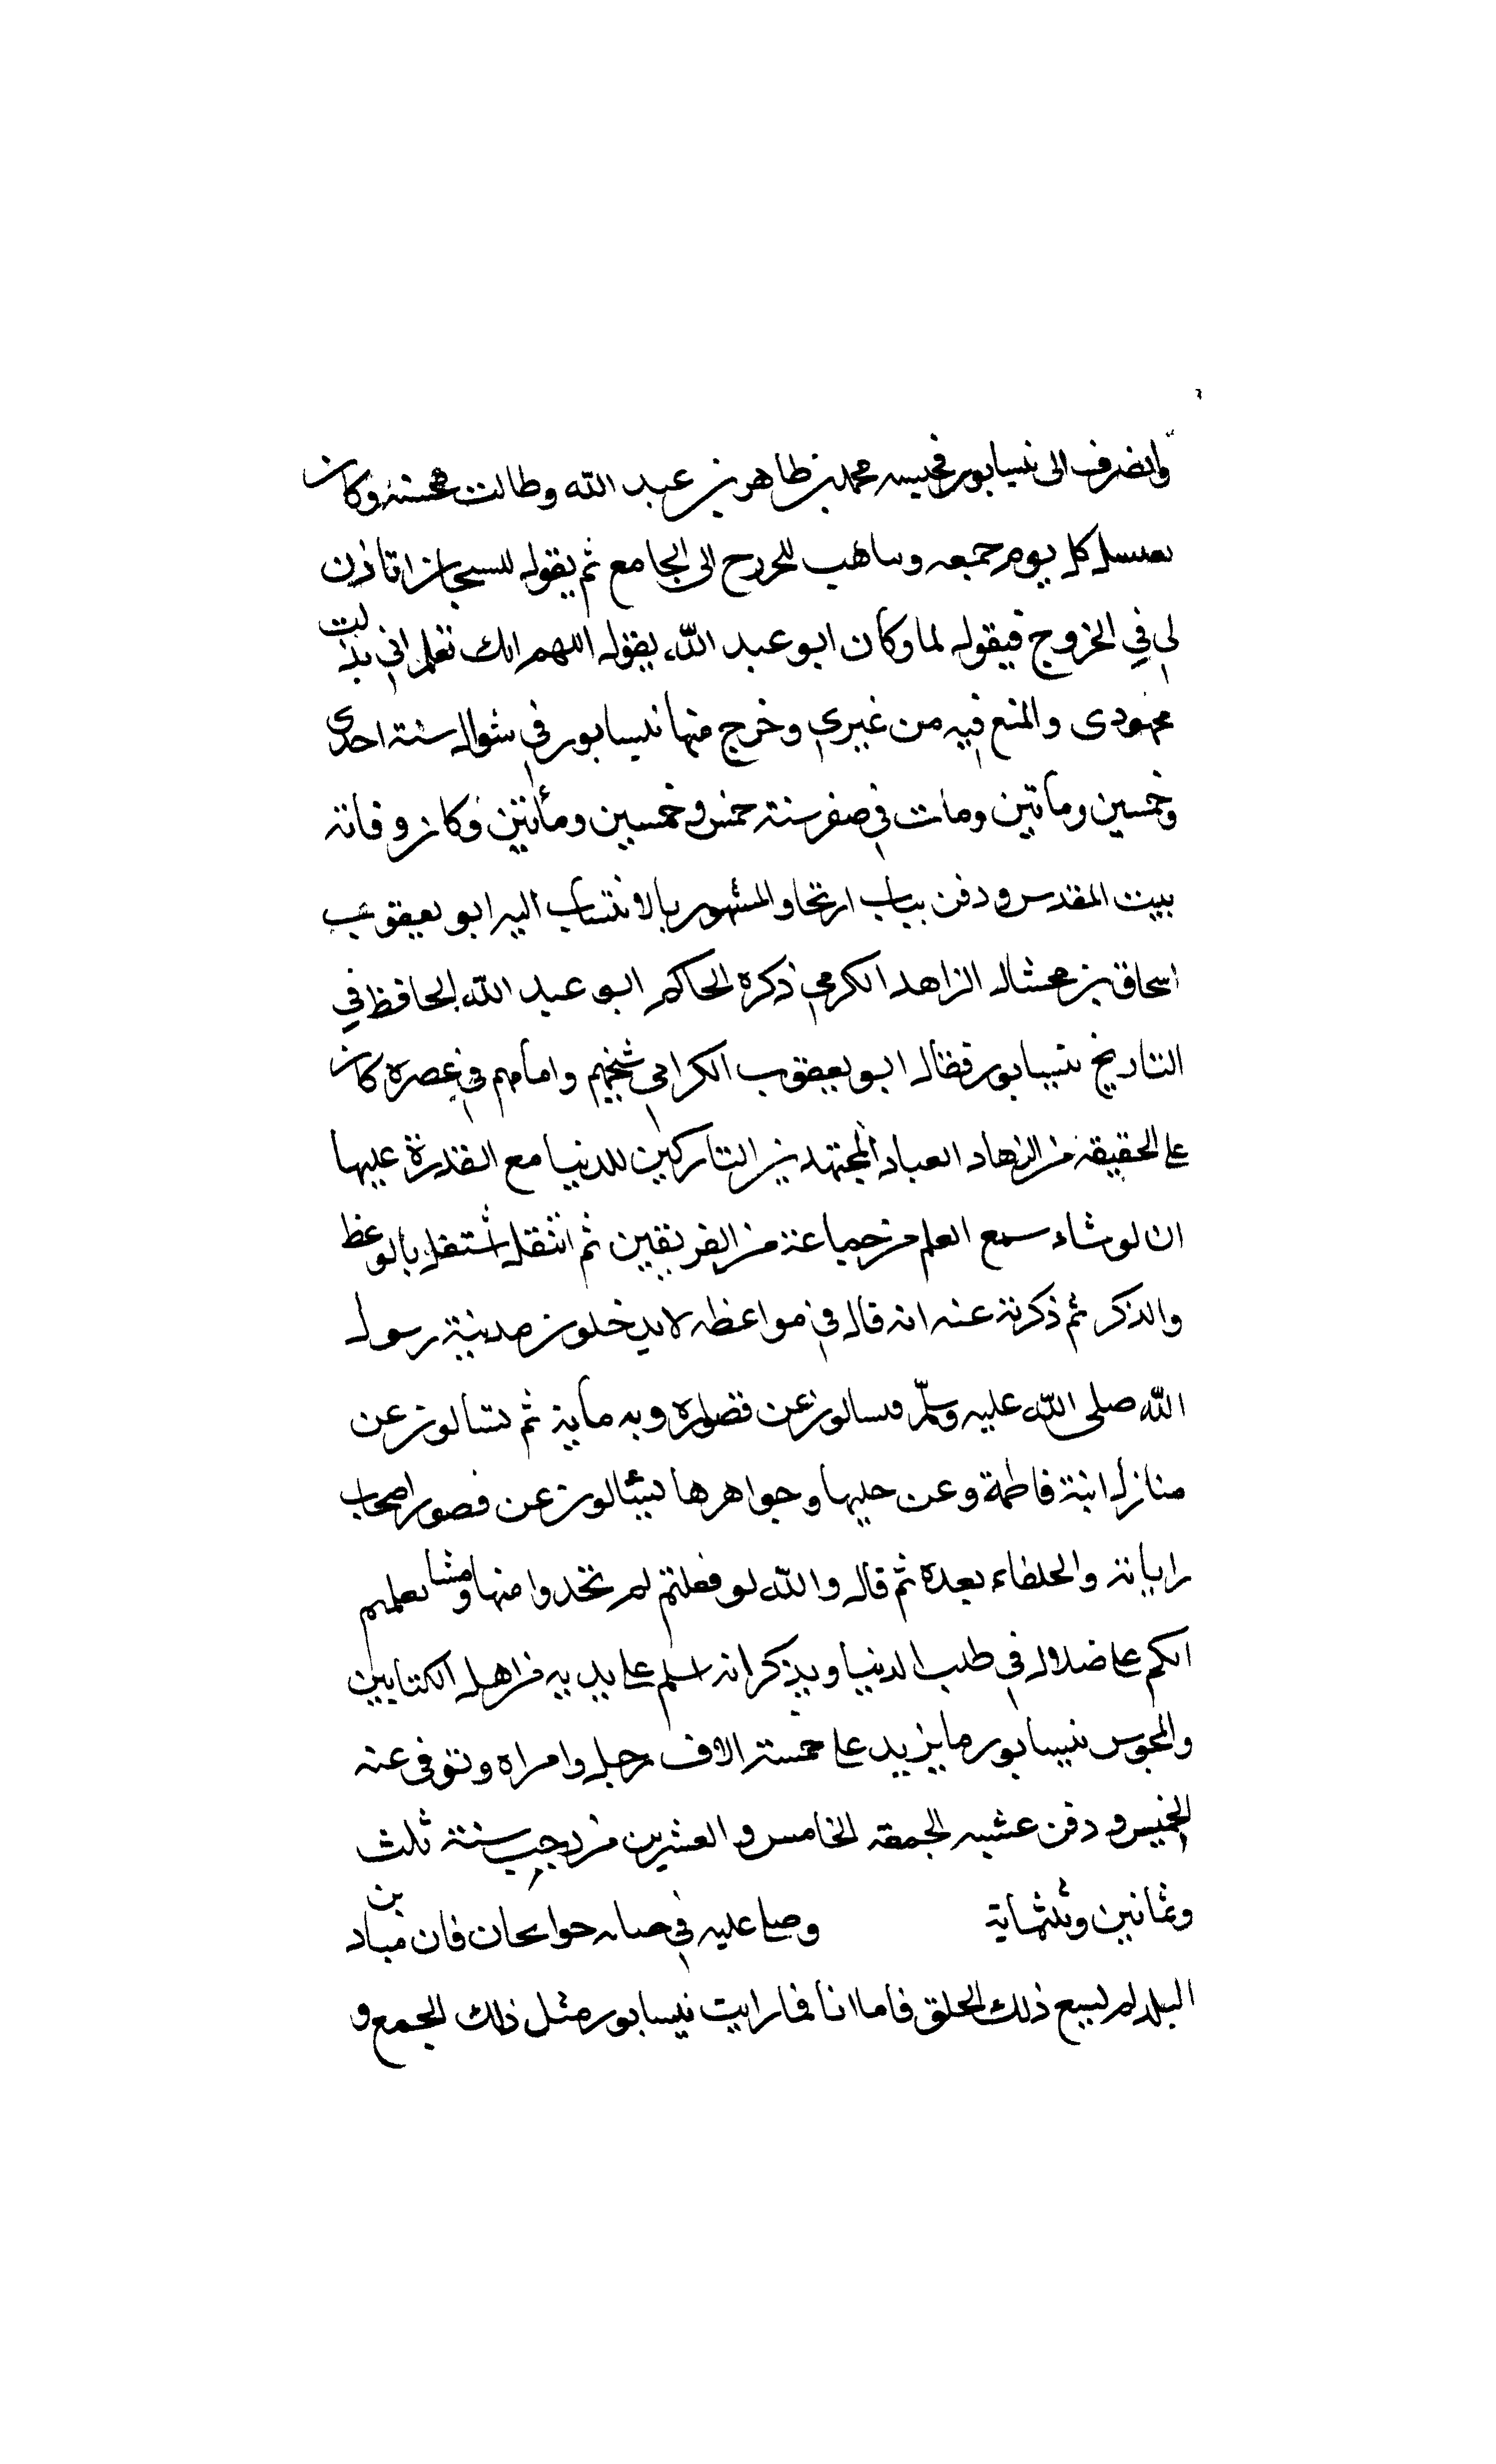 وانصرف الى نيسابور فحبسه محمد بن طاهر بن عبد الله وطالت محنته وكان
يغتسل كل يوم جمعه ويتاهب للخروج الى الجامع ثم يقول للسجان اتاذن
لي في الخروج فيقول لا وكان ابو عبد الله يقول اللهم انك تعلم اني بذلت
مجهودى والمنع فيه من غيري وخرج منها نيسابور في شوال سنة احدى
وخمسين وماتين ومات في صفر سنة خمس وخمسين ومأتين وكان وفاته
ببيت المقدس ودفن بباب اريحا والمشهور بالانتساب اليه ابو يعقوب
اسحاق بن محمشاد الزاهد الكرمي ذكره الحاكم ابو عبد الله الحافظ في
التاريخ نيسابور فقال ابو يعقوب الكرامي شيخهم وامامهم في عصره كان
على الحقيقة من الزهاد العباد المجتهدين التاركين للدنيا مع القدرة عليها
ان لو شاء سمع العلم من جماعة من الفريقين ثم انتقل اشتغل بالوعظ
والذكر ثم ذكرته عنه انه قال في مواعظه لا يدخلون مدينة رسول
الله صلى الله عليه وسلم فيسالون عن قصوره وبه ماية ثم تسالون عن
منازل ابنة فاطمة وعن حليها وجواهرها تسالون عن قصور اصحاب
راياته والخلفاء بعده ثم قال والله لو فعلتم لم تجدوا منها ومشا تعلمهم
انكم على ضلال في طلب الدنيا ويذكر انه اسلم على يديه من اهل الكتابين
والمجوس نيسابور ما يزيد على خمسة الاف رجل وامراة وتوفى عنه
الخميس ودفن عشيه الجمعه الخامس والعشرين من رجب سنة ثلث
وثمانين وثلثماية وصلى عليه في حوايحان فان
البلد لم يسع ذلك الخلق فاما انا فما رايت نيسابور مثل ذلك الجمع و